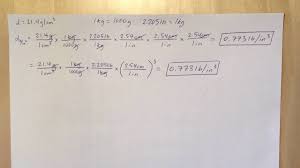 d = 21.4g/cm³ 1kg = 1000g 2.205lb = 1kg
= 21.4g/1cm³ × 1kg/1000g × 2.205lb/1kg × 2.54cm/1in × 2.54cm/1in × 2.54cm/1in = 0.773lb/in³
= 21.4g/1cm³ × 1kg/1000g × 2.205lb/1kg × (2.54cm/1in)³ = 0.773lb/in³